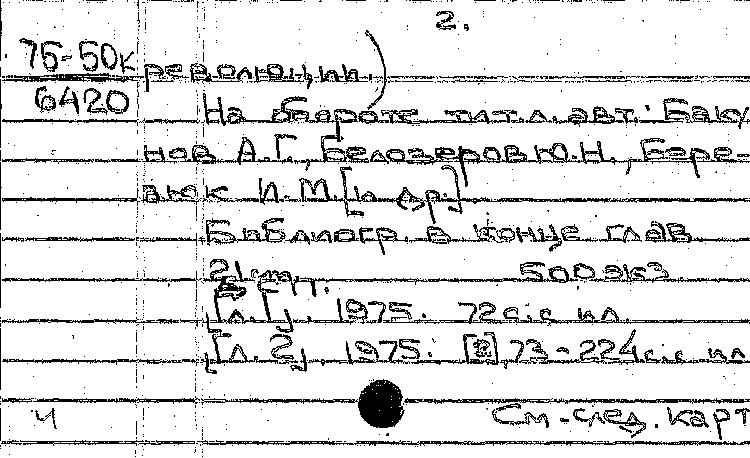 2.
75-50к
6420
революции.)
На обороте тит.л. авт.: Баку-
нов А.Г., Белозеров Ю.Н., Бере-
зюк И.М. [и др.]
Библиогр. в конце глав
21 см. 500 экз
[Л. 1]. 1975. 72 с. с ил.
[Л. 2]. 1975. [2], 73-224 с. с ил
ч См. след. карт